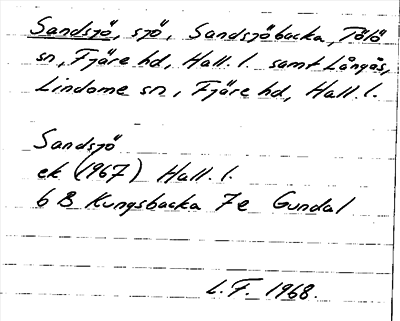 Sandsjö, sjö, Sandsjöbacka, Tölö
sn, Fjäre hd, Hall. l. samt Långås,
Lindome sn, Fjäre hd, Hall. l.
Sandsjö
ek (1967) Hall. l.
6 B Kungsbacka 7e Gundal
L.F. 1968.